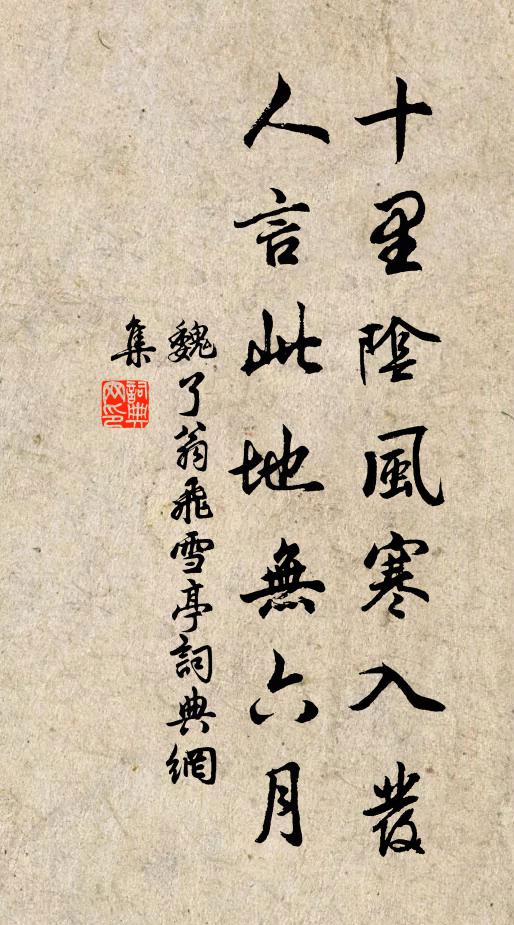 十里陰風寒入發
人言此地無六月
魏了翁飛雪亭詞典網
集
詞典
网印